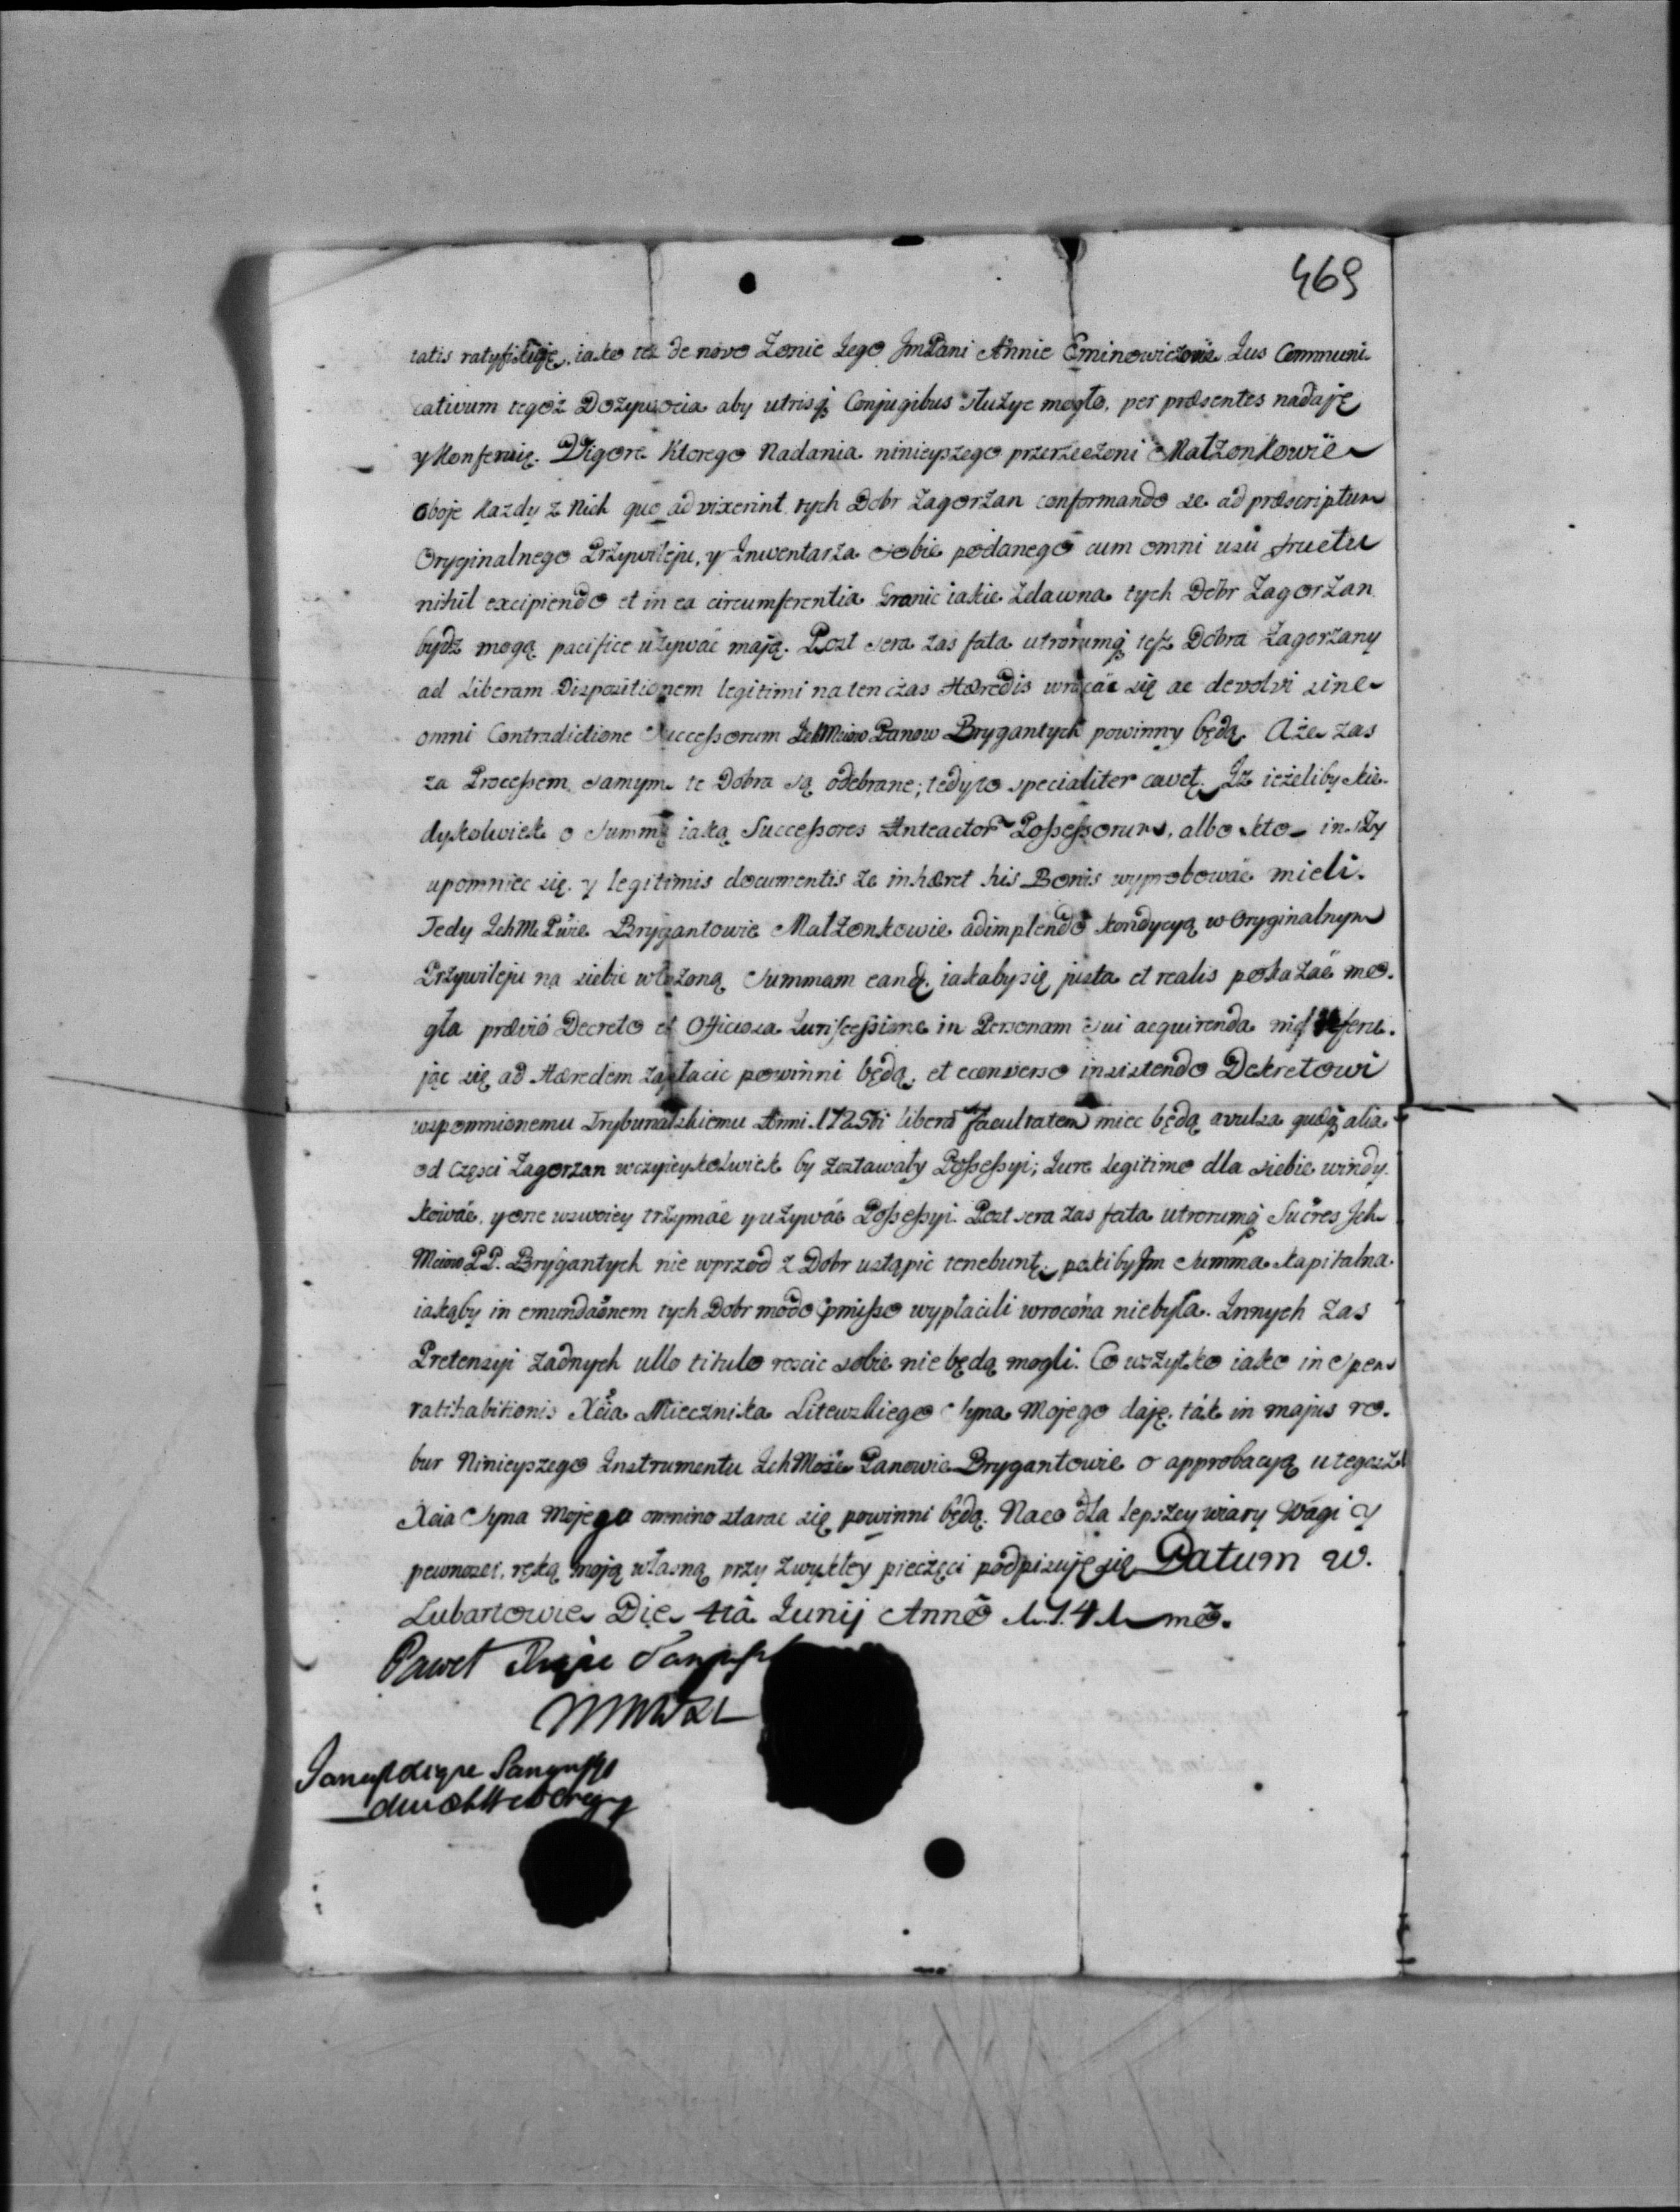 469
tatis ratyfikuję, iako też de novo Zonie Jego JmPani Annie Eminowiczowie Jus Communi-
cativum tegoż Dozywocia aby utrisq Conjugibus służyc mogło, per præsentes nadaję
y konferuię. Vigore Ktorego Nadania ninieyszego przerzeczoni Małzonkowie
oboje kazdy z Nich quo ad vixerint, tych Dobr Zagorzan conformando se ad præscriptum
Oryginalnego Przywileju, y Inwentarza sobie podanego cum omni usu fructu
nihil excipiendo et in ea circumferentia Granic iakie zdawna tych Dobr Zagorzan
bydź mogą pacifice uzywać mają. Post sera zas fata utrorumq tesz Dobra Zagorzany
ad Liberam Dispositionem legitimi na ten czas Hæredis wracać się ac devolvi sine
omni Contradictione Successorum IchMciow Panow Brygantych powinny będą. A że zas
za Processem samym te Dobra są odebrane; tedy to specialiter cavet. Iz ieżeliby kie-
dyszkolwiek o summę iaką Successores Anteactor Possessorum, albo kto inszy
upomniec się y legitimis documentis ze inhæret his Bonis wyprobować mieli.
Tedy IchM Pwie Brygantowie Małzonkowie adimplendo kondycyą w Oryginalnym
Przywileju na siebie włożoną Summam eand, iakaby się justa et realis pokazać mo-
gła prævio Decreto et Officiosa Jurisceßione in Personam sui acquirenda nię referu-
jąc się ad Hæredem zapłacic powinni będą, et econverso insistendo Dekretowi
wspomnionemu Trybunalskiemu Anni 1725ti liberã facultatem miec będą avulsa quæq alia
od Częsci Zagorzan w czyieykolwiek by zostawały Possessyi; Jure Legitimo dla siebie windy-
kować, y one w swoiey trzymać y uzywać Possessyi. Post sera zas fata utrorumq Sucres Ich
Mciow PP. Brygantych nie wprzod z Dobr ustąpic tenebunt, pokiby Im Summa kapitalna
iakąby in emundaõnem tych Dobr modo pmisso wypłacili wrocona niebyła. Innych zas
Pretensyi zadnych ullo titulo roscic sobie nie będą mogli. Co wszytko iako in spem
ratihabitionis Xcia Miecznika Litewskiego Syna Mojego daję, ták in majus ro-
bur Ninieyszego Instrumentu IchMość Panowie Brygantowie o approbacyą u tegosz
Xcia Syna Mojego omnino starac się powinni będą. Na co dla lepszey wiary Wagi y
pewnosci, ręką moją własną przy zwykłey pieczęci podpisuję się. Datum w.
Lubartowie Die 4tâ Junij Annõ 1741mõ.
Paweł Xiąże Sangusz
MMWXL
Janusz Xiąze Sanguszko